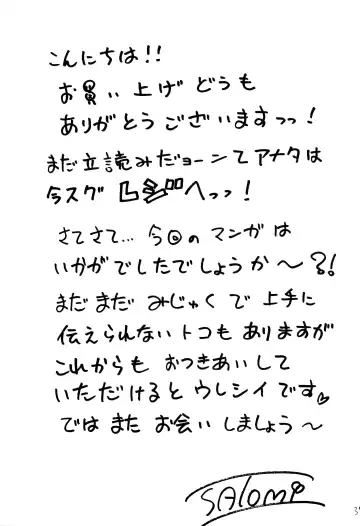 こんにちは!!
お買い上げ どうも
ありがとうございますっっ!
まだ立読みだョーンてアナタは
今スグ レジへっっ!
さてさて… 今回の マンガは
いかがでしたでしょうか〜?!
まだまだ みじゅくで 上手に
伝えられない トコも ありますが
これからも おつきあいして
いただけると ウレシイです♡
では また お会い しましょう〜
SALOMi